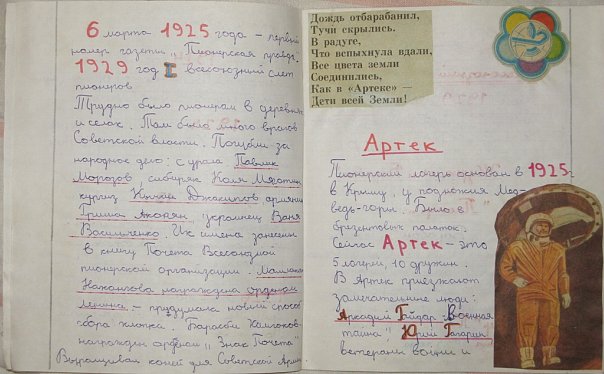 6 марта 1925 года – первый
номер газеты „Пионерская правда.
1929 год I всесоюзный слет
пионеров
Трудно было пионерам в деревнях
и селах. Там было много врагов
Советской власти. Погибли за
народное дело: с урала Павлик
Морозов сибиряк Коля Мяготин
киргиз Кычан Джакыпов армянин
Гриша Акопян, украинец Ваня
Василченко. Их имена занесены
в книгу Почета Всесоюзной
пионерской организации. Мамлакат
Нахангова награждена орденом
Ленина – придумала новый способ
сбора хлопка. Барасби Хамгоков
награжден орденом „Знак Почета"
Выращивал коней для Советской Армии
Дождь отбарабанил,
Тучи скрылись.
В радуге,
Что вспыхнула вдали,
Все цвета земли
Соединились,
Как в «Артеке» —
Дети всей Земли!
Артек
Пионерский лагерь основан в 1925г.
в Крыму, у подножия Мед-
ведь-горы. Было 4
брезентовых палаток.
Сейчас Артек – это
5 лагерей, 10 дружин.
В Артек приезжают
замечательные люди:
Аркадий Гайдар „Военная
тайна" Юрий Гагарин,
ветераны войны и